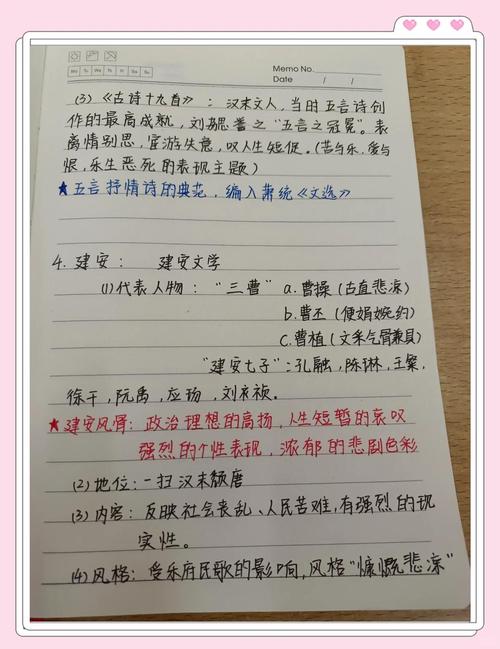 Memo No.
Mo Tu We Th Fr Sa Su
Date / /
(3)《古诗十九首》：汉末文人，当时五言诗创
作的最高成就，刘勰誉之"五言之冠冕"。表
离情别思，宦游失意，叹人生短促。(苦与乐，爱与
恨，乐生恶死的表现主题)
★五言抒情诗的典范，编入萧统《文选》
4. 建安： 建安文学
(1)代表人物："三曹" a.曹操(古直悲凉)
b.曹丕(便娟婉约)
C.曹植(文采气骨兼具)
"建安七子"：孔融，陈琳，王粲，
徐干，阮禹，应玚，刘祯。
★建安风骨：政治理想的高扬，人生短暂的哀叹
强烈的个性表现，浓郁的悲剧色彩
(2)地位：一扫汉末颓靡
(3)内容：反映社会丧乱、人民苦难，有强烈的现
实性。
(4)风格：受乐府民歌的影响，风格"慷慨悲凉"